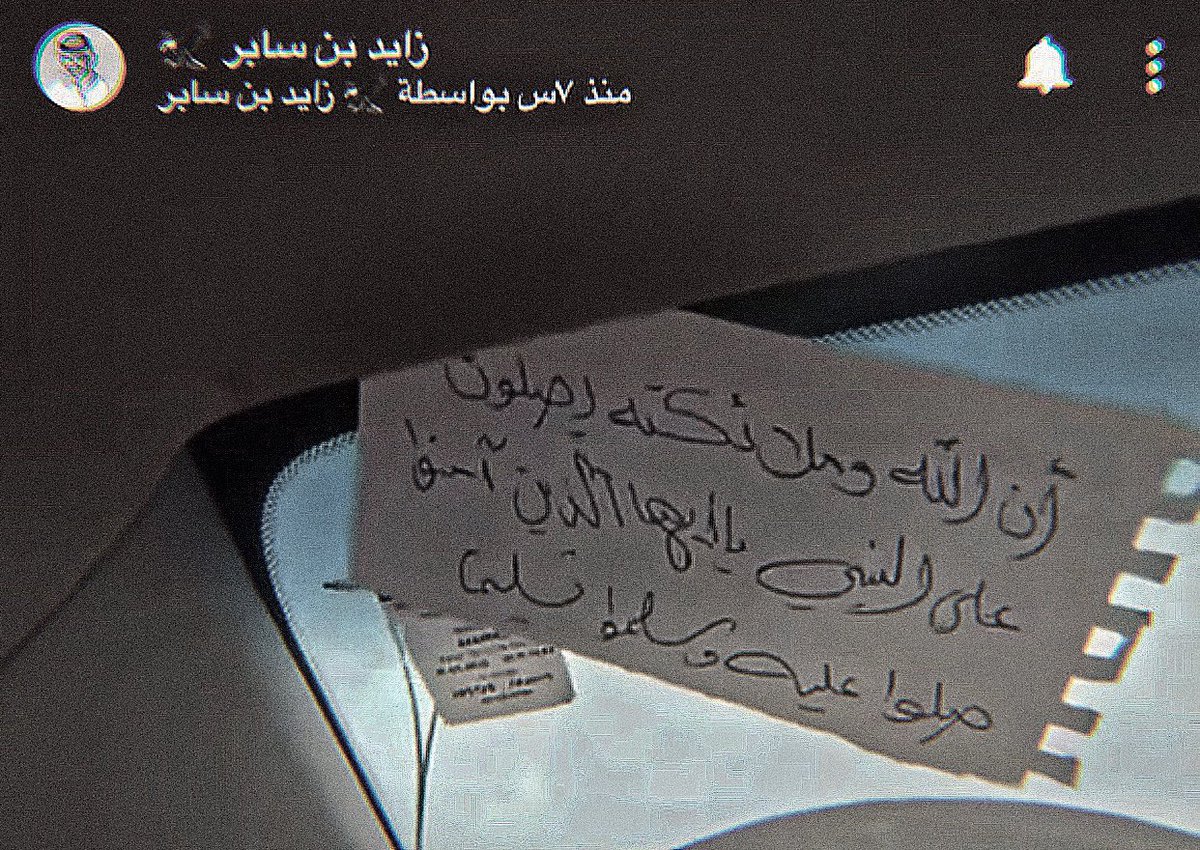 زايد بن سابر
منذ ٧س بواسطة زايد بن سابر
أن الله وملائكته يصلون
على النبي ياايها الذين آمنوا
صلوا عليه وسلموا تسليما